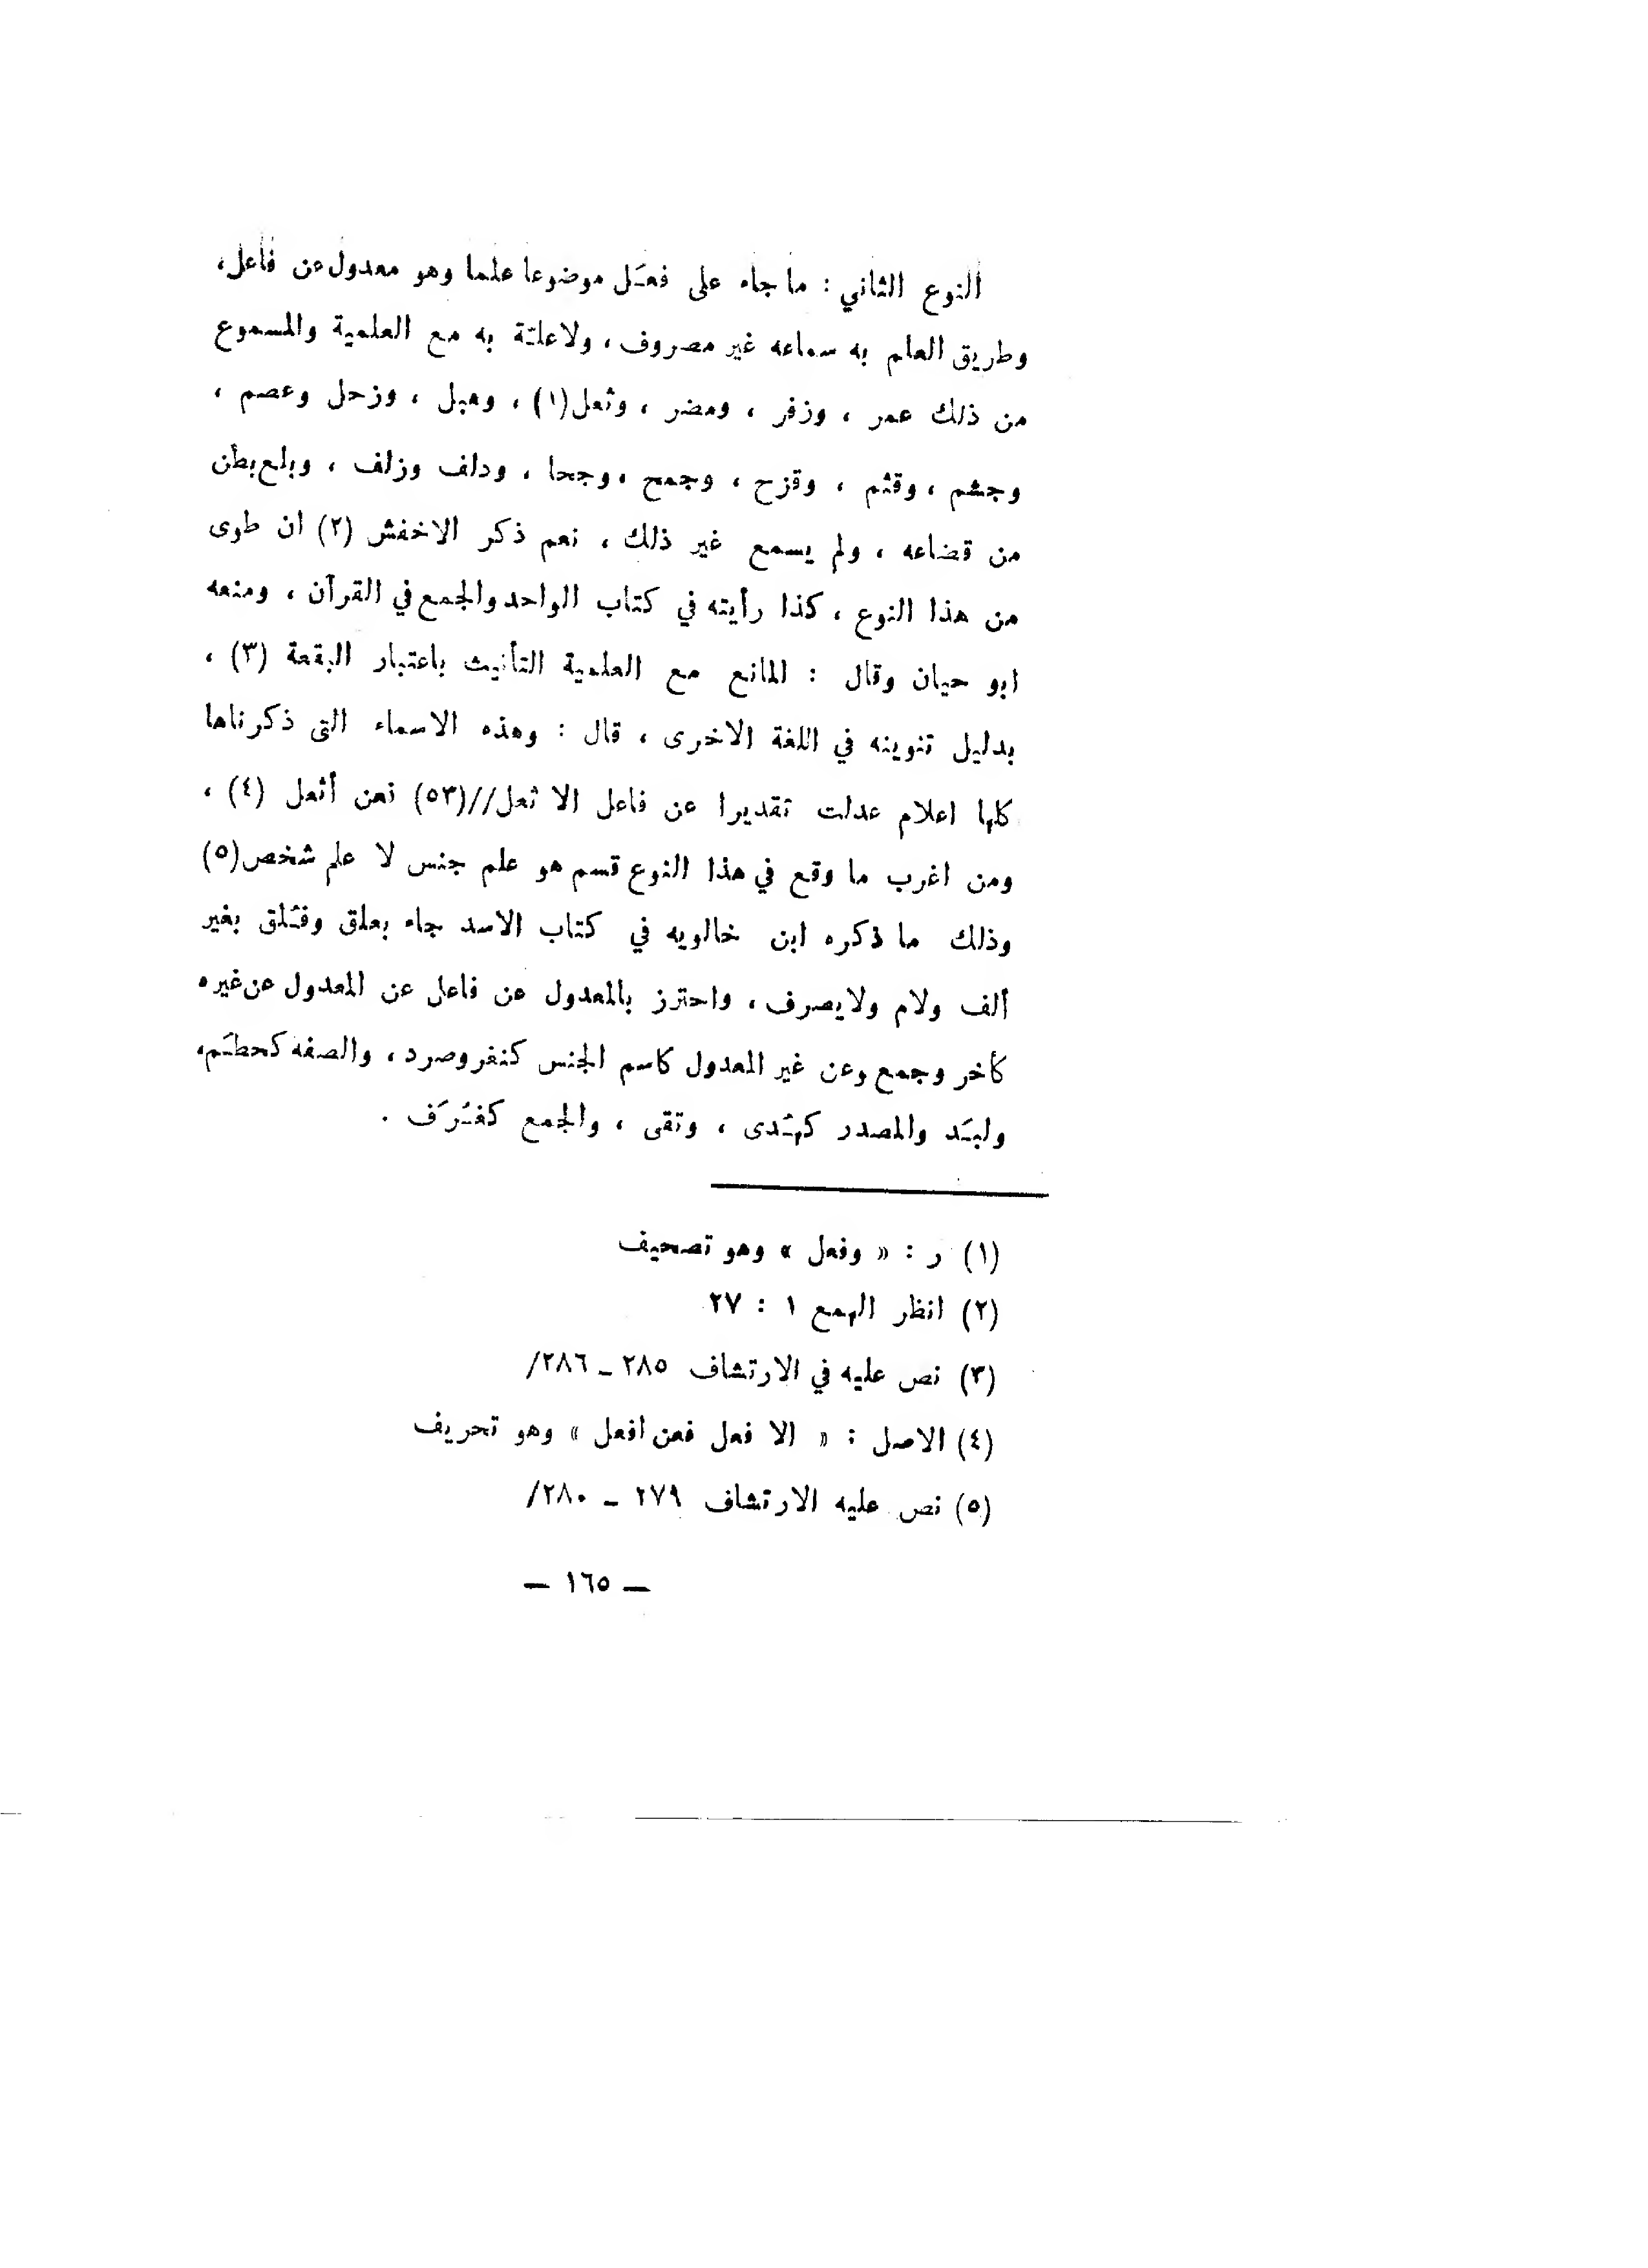 النوع الثاني : ما جاء على فعَل موضوعا علما وهو معدول عن فاعل،
وطريق العلم به سماعه غير مصروف ، ولا علّة به مع العلمية والمسموع
من ذلك عمر ، وزفر ، ومضر ، وثعل(١) ، وهبل ، وزحل وعصم ،
وجشم ، وقثم ، وقزح ، وجمح ، وجحا ، ودلف وزلف ، وبلع بطن
من قضاعه ، ولم يسمع غير ذلك ، نعم ذكر الاخفش (٢) ان طوى
من هذا النوع ، كذا رأيته في كتاب الواحد والجمع في القرآن ، ومنعه
ابو حيان وقال : المانع مع العلمية التأنيث باعتبار البقعة (٣) ،
بدليل تنوينه في اللغة الاخرى ، قال : وهذه الاسماء التى ذكرناها
كلها اعلام عدلت تقديرا عن فاعل الا ثعل//(٥٣) فعن أثعل (٤) ،
ومن اغرب ما وقع في هذا النوع قسم هو علم جنس لا علم شخص(٥)
وذلك ما ذكره ابن خالويه في كتاب الاسد جاء بعلق وفُلق بغير
ألف ولام ولا يصرف ، واحترز بالمعدول عن فاعل عن المعدول عن غيره
كأخر وجمع وعن غير المعدول كاسم الجنس كنغر وصرد ، والصفه كحطَم،
ولبَد والمصدر كهُدى ، وتقى ، والجمع كغُرَف .
(١) ر : « وفعل » وهو تصحيف
(٢) انظر الهمع ١ : ٢٧
(٣) نص عليه في الارتشاف ٢٨٥ – ٢٨٦/
(٤) الاصل : « الا فعل فعن افعل » وهو تحريف
(٥) نص عليه الارتشاف ٢٧٩ – ٢٨٠/
— ١٦٥ —